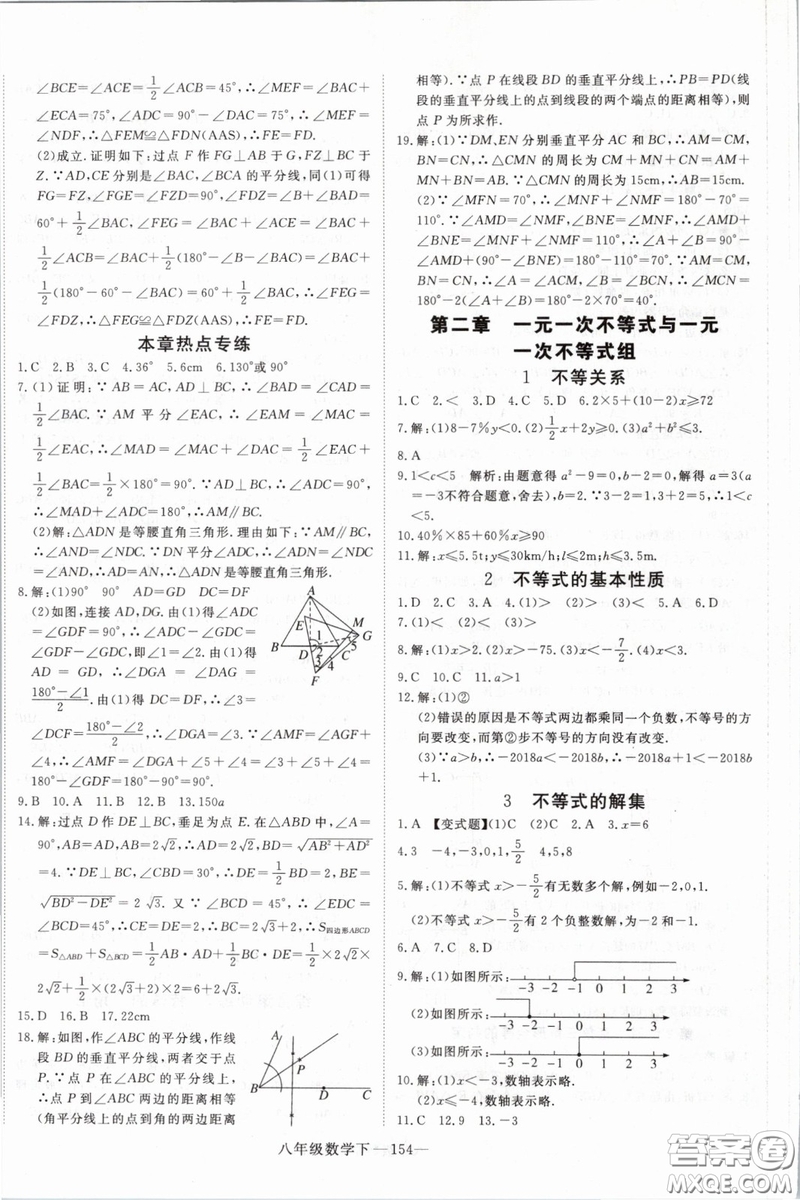 ∠BCE=∠ACE=1/2∠ACB=45°,∴∠MEF=∠BAC+
∠ECA=75°,∠ADC=90°-∠DAC=75°,∴∠MEF=
∠NDF,∴△FEM≌△FDN(AAS),∴FE=FD.
(2)成立.证明如下:过点 F 作 FG⊥AB 于 G,FZ⊥BC 于
Z.∵AD,CE 分别是∠BAC,∠BCA 的平分线,同(1)可得
FG=FZ,∠FGE=∠FZD=90°,∠FDZ=∠B+∠BAD=
60°+1/2∠BAC,∠FEG=∠BAC+∠ECA=∠BAC+
1/2∠ACB=∠BAC+1/2(180°-∠B-∠BAC)=∠BAC+
1/2(180°-60°-∠BAC)=60°+1/2∠BAC,∴∠FEG=
∠FDZ,∴△FEG≌△FDZ(AAS),∴FE=FD.
本章热点专练
1.C 2.B 3.C 4.36° 5.6cm 6.130°或90°
7.(1)证明:∵AB=AC,AD⊥BC,∴∠BAD=∠CAD=
1/2∠BAC.∵AM 平分∠EAC,∴∠EAM=∠MAC=
1/2∠EAC,∴∠MAD=∠MAC+∠DAC=1/2∠EAC+
1/2∠BAC=1/2×180°=90°.∵AD⊥BC,∴∠ADC=90°,
∴∠MAD+∠ADC=180°,∴AM∥BC.
(2)解:△ADN 是等腰直角三角形.理由如下:∵AM∥BC,
∴∠AND=∠NDC.∵DN 平分∠ADC,∴∠ADN=∠NDC
=∠AND,∴AD=AN,∴△ADN 是等腰直角三角形.
8.解:(1)90° 90° AD=GD DC=DF
(2)如图,连接 AD,DG.由(1)得∠ADC
=∠GDF=90°,∴∠ADC-∠GDC=
∠GDF-∠GDC,即∠1=∠2.由(1)得
AD=GD,∴∠DGA=∠DAG=
(180°-∠1)/2.由(1)得 DC=DF,∴∠3=
∠DCF=(180°-∠2)/2,∴∠DGA=∠3.∵∠AMF=∠AGF+
∠4,∴∠AMF=∠DGA+∠5+∠4=∠3+∠5+∠4=
180°-∠GDF=180°-90°=90°.
A
M
G
B
D
C
F
1
2
3
4
5
9.B 10.A 11.B 12.B 13.150a
14.解:过点 D 作 DE⊥BC,垂足为点 E.在△ABD 中,∠A=
90°,AB=AD,AB=2√2,∴AD=2√2,BD=√(AB²+AD²)
=4.∵∠DBC=30°,DE⊥BC,∴DE=1/2BD=2,BE=
√(BD²-DE²)=2√3.又∵∠BCD=45°,∴∠EDC=
∠BCD=45°,∴CE=DE=2,∴BC=2√3+2,∴S四边形ABCD
=S△ABD+S△BCD=1/2AB·AD+1/2BC·DE=1/2×2√2×
2√2+1/2×(2√3+2)×2=6+2√3.
15.D 16.B 17.22cm
18.解:如图,作∠ABC 的平分线,作线
段 BD 的垂直平分线,两者交于点
P.∵点 P 在∠ABC 的平分线上,
∴点 P 到∠ABC 的两边距离相等
(角平分线上的点到角的两边距离
A
P
B
D
C
相等).∵点 P 在线段 BD 的垂直平分线上,∴PB=PD(线
段的垂直平分线上的点到线段的两个端点的距离相等),则
点 P 为所求作.
19.解:(1)∵DM,EN 分别垂直平分 AC 和 BC,∴AM=CM,
BN=CN,∴△CMN 的周长为 CM+MN+CN=AM+
MN+BN=AB.∵△CMN 的周长为15cm,∴AB=15cm.
(2)∵∠MFN=70°,∴∠MNF+∠NMF=180°-70°=
110°.∵∠AMD=∠NMF,∠BNE=∠MNF,∴∠AMD+
∠BNE=∠MNF+∠NMF=110°,∴∠A+∠B=90°-
∠AMD+(90°-∠BNE)=180°-110°=70°.∵AM=CM,
BN=CN,∴∠A=∠ACM,∠B=∠BCN,∴∠MCN=
180°-2(∠A+∠B)=180°-2×70°=40°.
第二章 一元一次不等式与一元
一次不等式组
1 不等关系
1.C 2.< 3.D 4.C 5.D 6.2×5+(10-2)x≥72
7.解:(1)8-7%y<0.(2)1/2x+2y≥0.(3)a²+b²≤3.
8.A
9.1<c<5 解析:由题意得 a²-9=0,b-2=0.解得 a=3(a
=-3不符合题意,舍去),b=2.∵3-2=1,3+2=5,∴1<c
<5.
10.40%×85+60%x≥90
11.解:x≤5.5t;y≤30km/h;l≤2m;h≤3.5m.
2 不等式的基本性质
1.D 2.C 3.A 4.(1)> (2)> 5.B 6.A
7.(1)< (2)< (3)> (4)>
8.解:(1)x>2.(2)x>-5.(3)x<-7/2.(4)x<3.
9.C 10.C 11.a>1
12.解:(1)②
(2)错误的原因是不等式两边都乘同一个负数,不等号的方
向要改变,而第②步不等号的方向没有改变.
(3)∵a>b,∴-2018a<-2018b,∴-2018a+1<-2018b
+1.
3 不等式的解集
1.A 【变式题】(1)C (2)D 2.A 3.x=6
4.3 -4,-3,0,1,5/2 4,5,8
5.解:(1)不等式 x>-5/2有无数多个解,例如-2,0,1.
(2)不等式 x>-5/2有 2 个负整数解,为-2和-1.
6.A 7.C 8.D
9.解:(1)如图所示:
-3 -2 -1 0 1 2 3
(2)如图所示:
-3 -2 -1 0 1 2 3
(3)如图所示:
-3 -2 -1 0 1 2 3
10.解:(1)x<-3,数轴表示略.
(2)x≤-3,数轴表示略.
11.C 12.9 13.-3
八年级数学下 —154—
答案圈
MXQE.COM